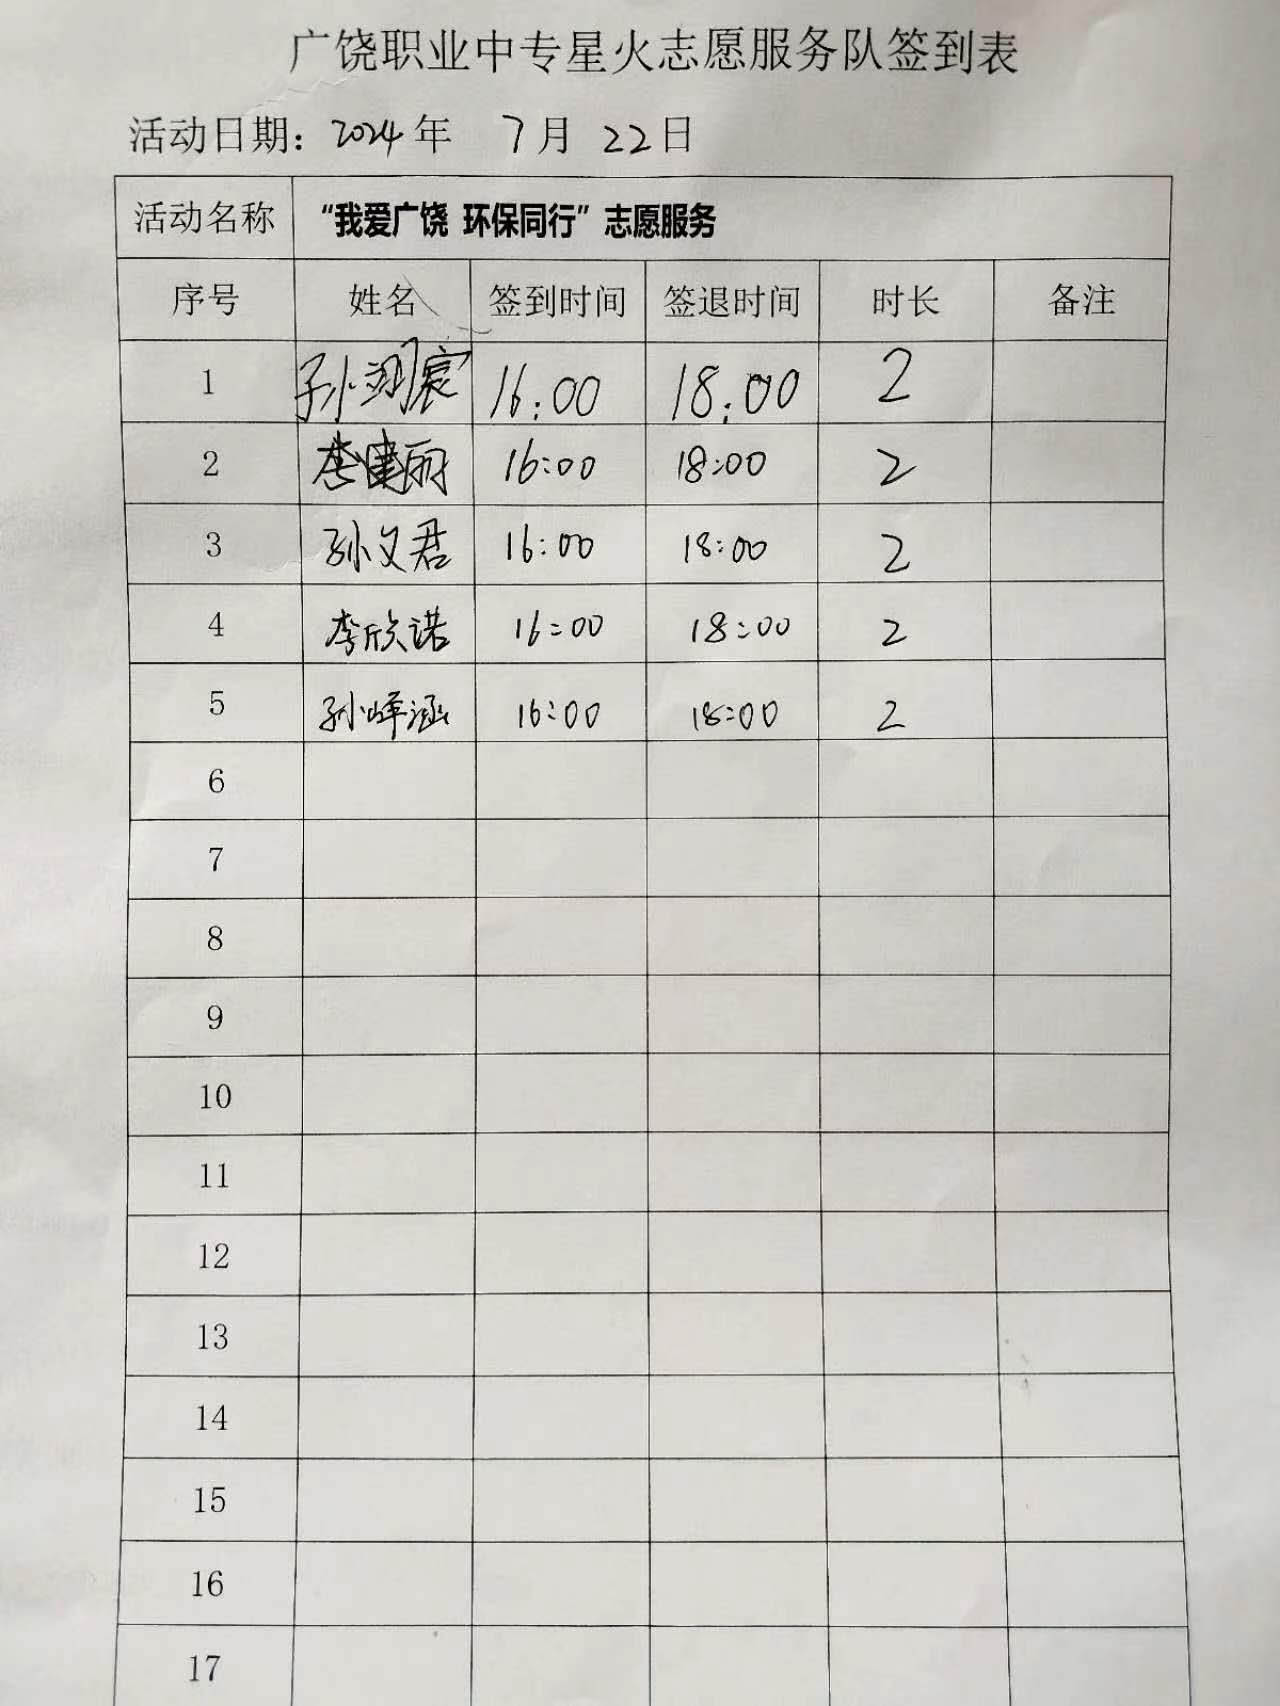 广饶职业中专星火志愿服务队签到表
活动日期：2024年 7月 22日
活动名称 “我爱广饶 环保同行”志愿服务
序号 姓名 签到时间 签退时间 时长 备注
1 孙 16:00 18:00 2
2 李健丽 16:00 18:00 2
3 孙文君 16:00 18:00 2
4 李欣诺 16:00 18:00 2
5 孙峄涵 16:00 18:00 2
6
7
8
9
10
11
12
13
14
15
16
17